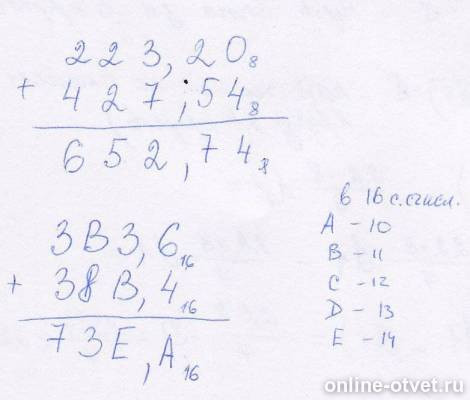 223,20₈
+ 427,54₈
652,74₈
3B3,6₁₆
+ 38B,4₁₆
73E,A₁₆
в 16 с.счисл.
A - 10
B - 11
C - 12
D - 13
E - 14
online-otvet.ru